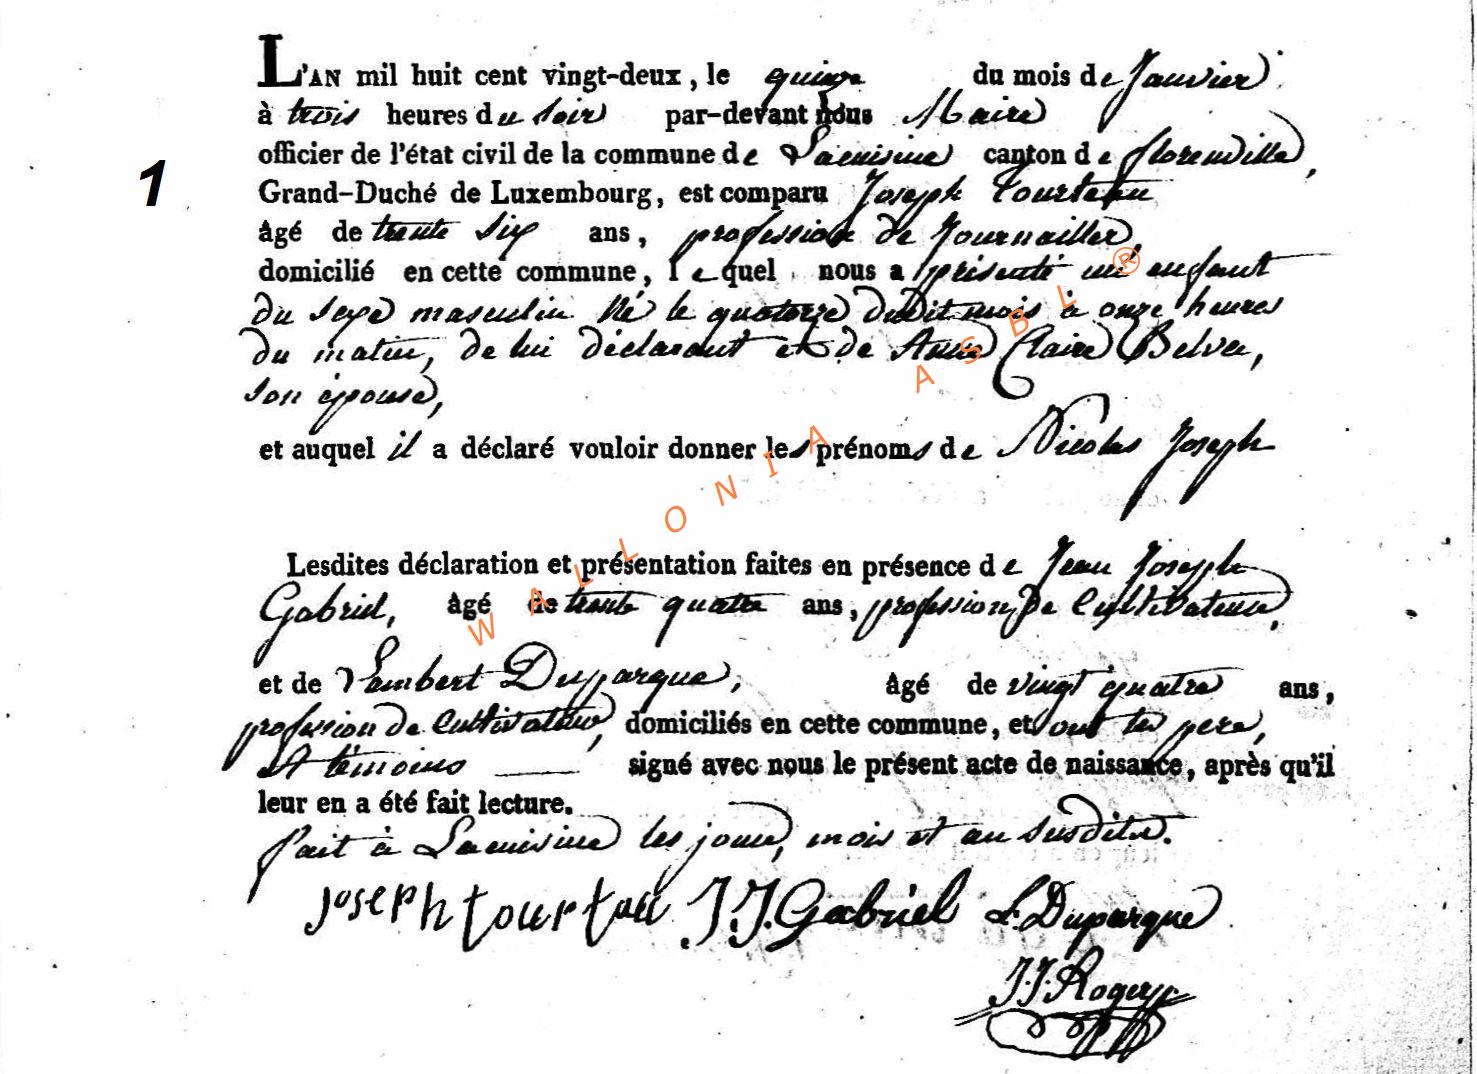 L'AN mil huit cent vingt-deux, le quinze du mois de Janvier
à trois heures du soir par-devant nous Maire
officier de l'état civil de la commune de Lacuisine canton de florenville,
1
Grand-Duché de Luxembourg, est comparu Joseph Tourteau
âgé de trente six ans, profession de Journaillier,
domicilié en cette commune, lequel nous a présenté un enfant
du sexe masculin Né le quatorze dudit mois à onze heures
du matin, de lui déclarant et de Anne Claire Belva,
son épouse,
et auquel il a déclaré vouloir donner les prénoms de Nicolas Joseph
Lesdites déclaration et présentation faites en présence de Jean Joseph
Gabriel, âgé de trente quatre ans, profession de Cultivateur,
et de Lambert Duparque, âgé de vingt quatre ans,
profession de Cultivateur, domiciliés en cette commune, et ont les pere,
et témoins signé avec nous le présent acte de naissance, après qu'il
leur en a été fait lecture.
fait à Lacuisine les jour, mois et an susdits.
Joseph tourtau J.J. Gabriel L. Duparque
J.J. Rogery
WALLONIA ASBL ®